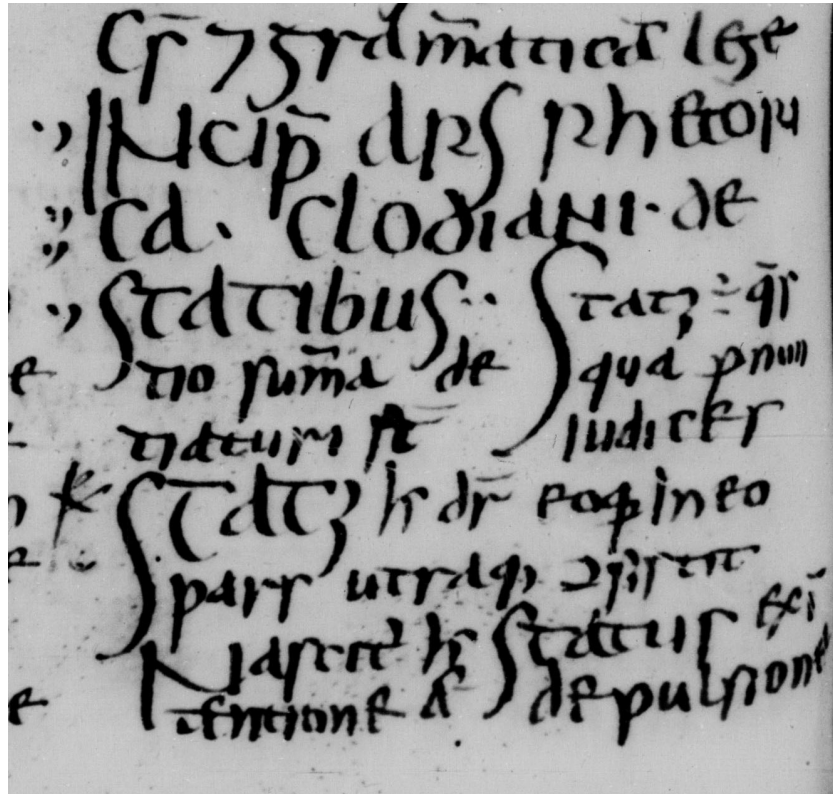 Cs̄ ⁊ grāmaticā lege
INcip̄ ars rhetoru
ca. Clodiani. de
Statibus.. Statꝫ ÷ q̄s
tio sum̄a de qua ꝓnun
tiaturi st̄ iudices
Statꝫ hs dr̄ eo qđ in eo
pars utraq; ↄsistit
Nascit᷑ hs status exī
tentione & depulsione